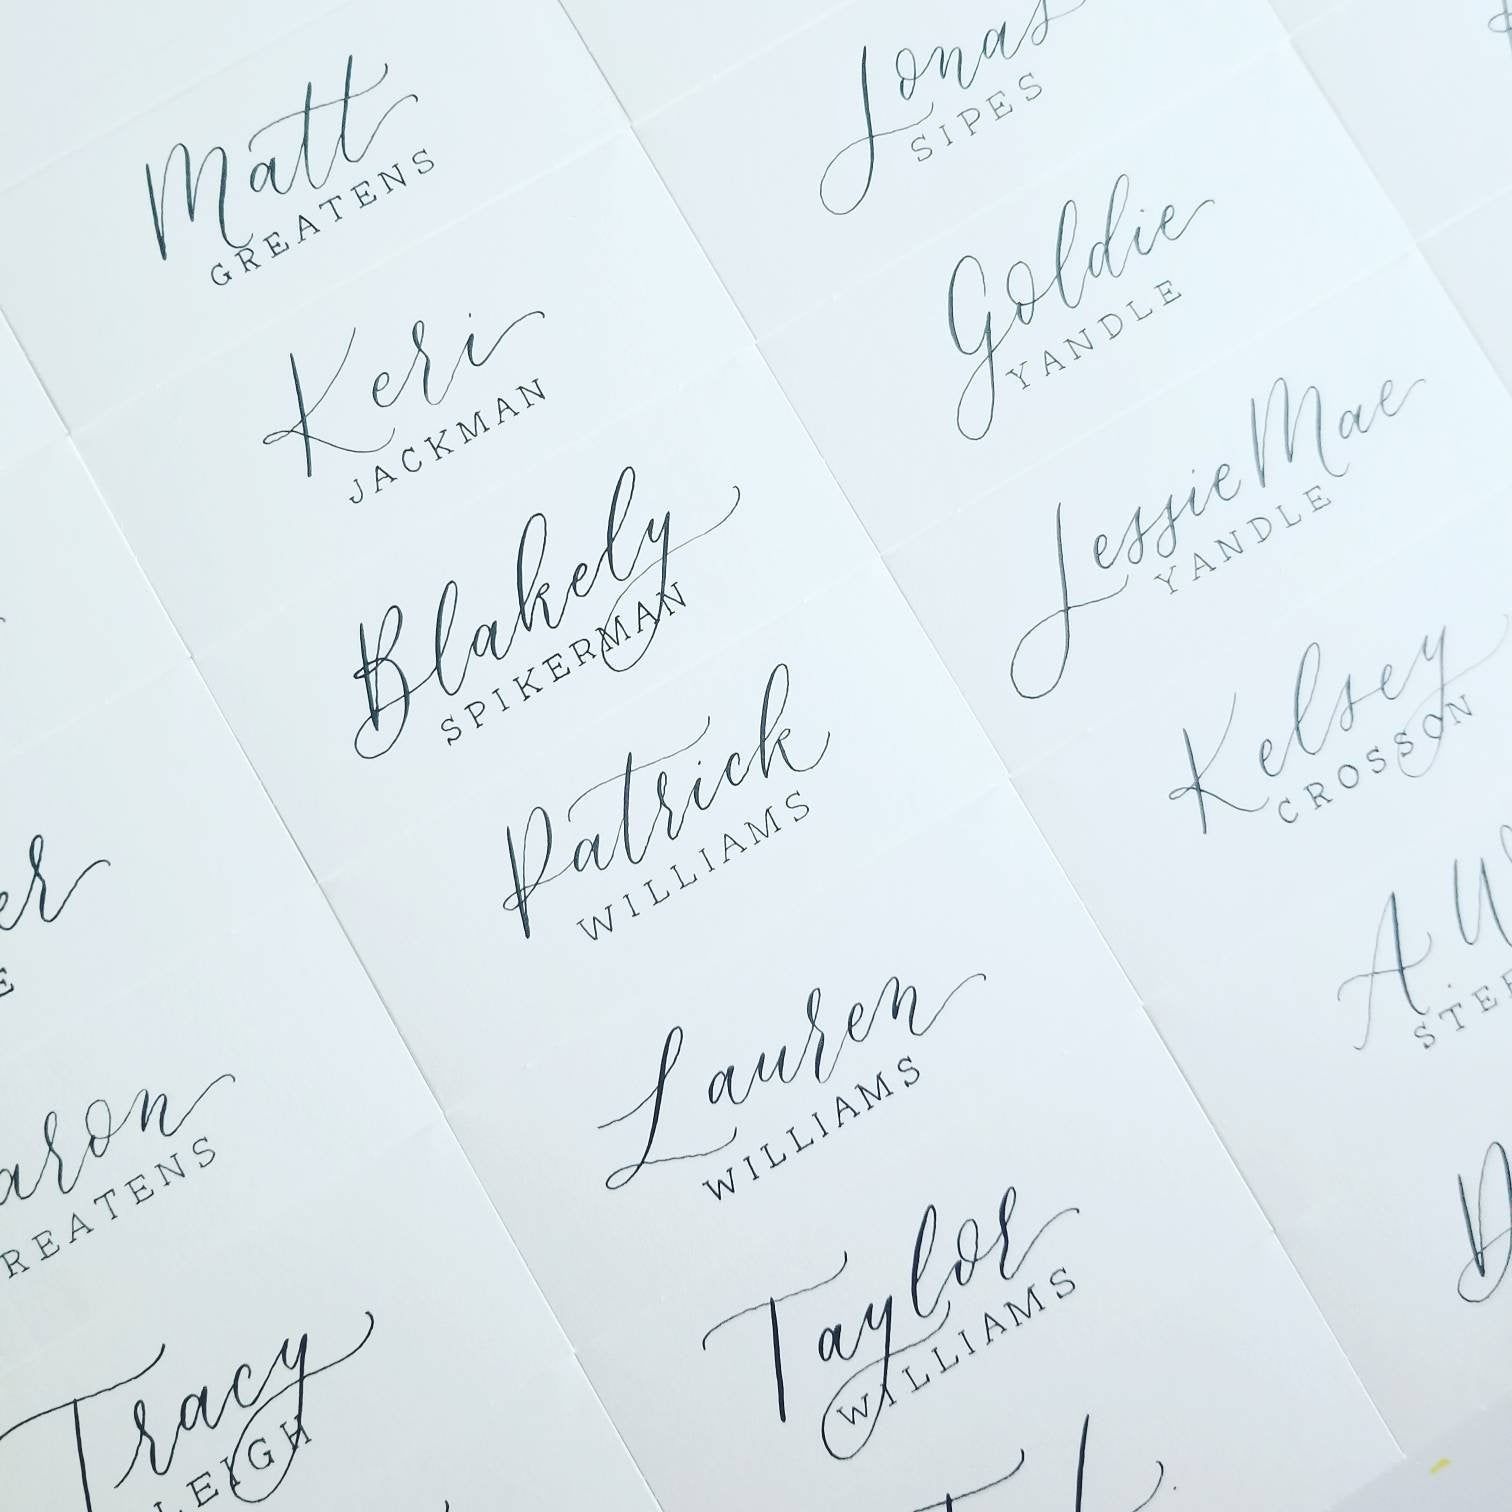 aron
REATENS
Tracy
LEIGH
Matt
GREATENS
Keri
JACKMAN
Blakely
SPIKERMAN
Patrick
WILLIAMS
Lauren
WILLIAMS
Taylor
WILLIAMS
Jonas
SIPES
Goldie
YANDLE
Jessie Mae
YANDLE
Kelsey
CROSSON
A.W
STE